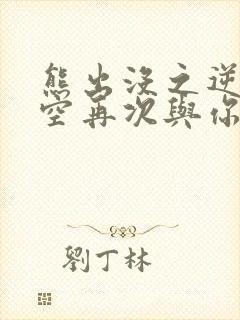 熊出沒之逆
空再次與你
劉丁林